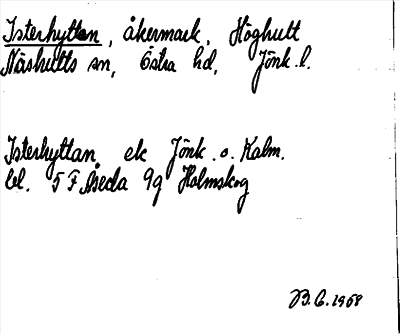 Isterhyttan, åkermark, Höghult
Näshults sn, Östra hd, Jönk. l.
Isterhyttan, ek Jönk. o. Kalm.
bl. 5 F Åseda 9g Holmskog
B.C. 1968